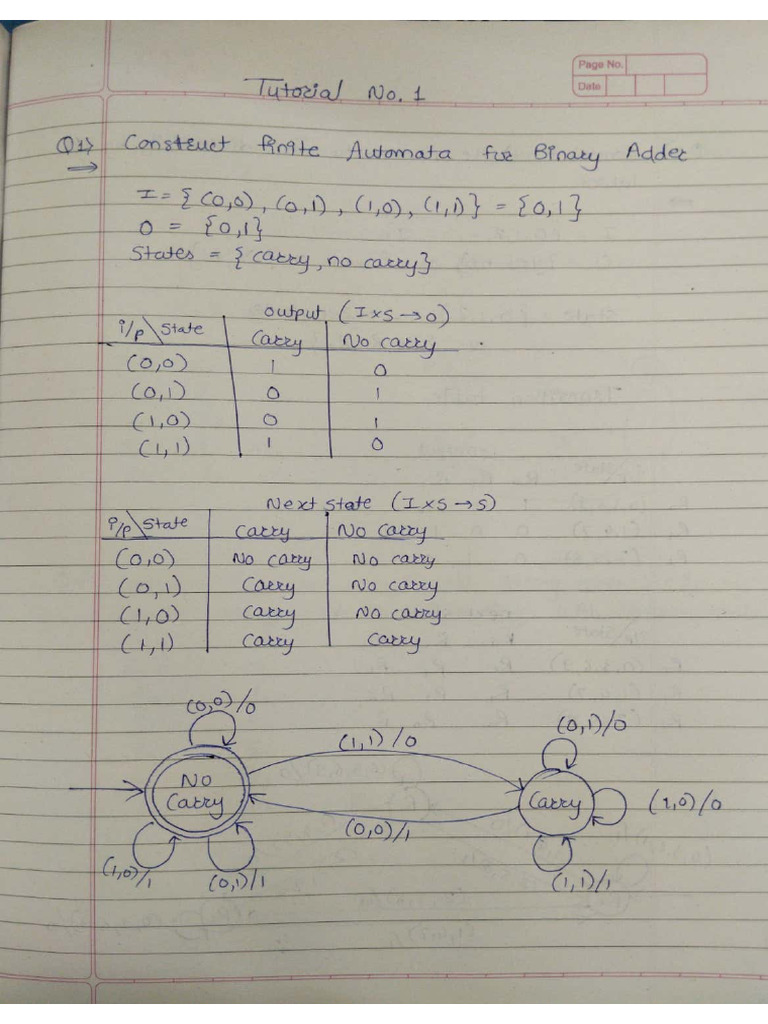 Page No.
Date
Tutorial No. 1
Q1) Construct finite Automata for Binary Adder
I = {(0,0), (0,1), (1,0), (1,1)} = {0,1}
O = {0,1}
States = {carry, no carry}
Output (I×S→O)
i/p\State Carry No carry
(0,0) 1 0
(0,1) 0 1
(1,0) 0 1
(1,1) 1 0
Next state (I×S→S)
i/p\State Carry No carry
(0,0) No carry No carry
(0,1) Carry No carry
(1,0) Carry No carry
(1,1) Carry Carry
(0,0)/0
(1,1)/0
(0,1)/0
No
Carry
Carry
(1,0)/0
(0,0)/1
(1,0)/1
(0,1)/1
(1,1)/1